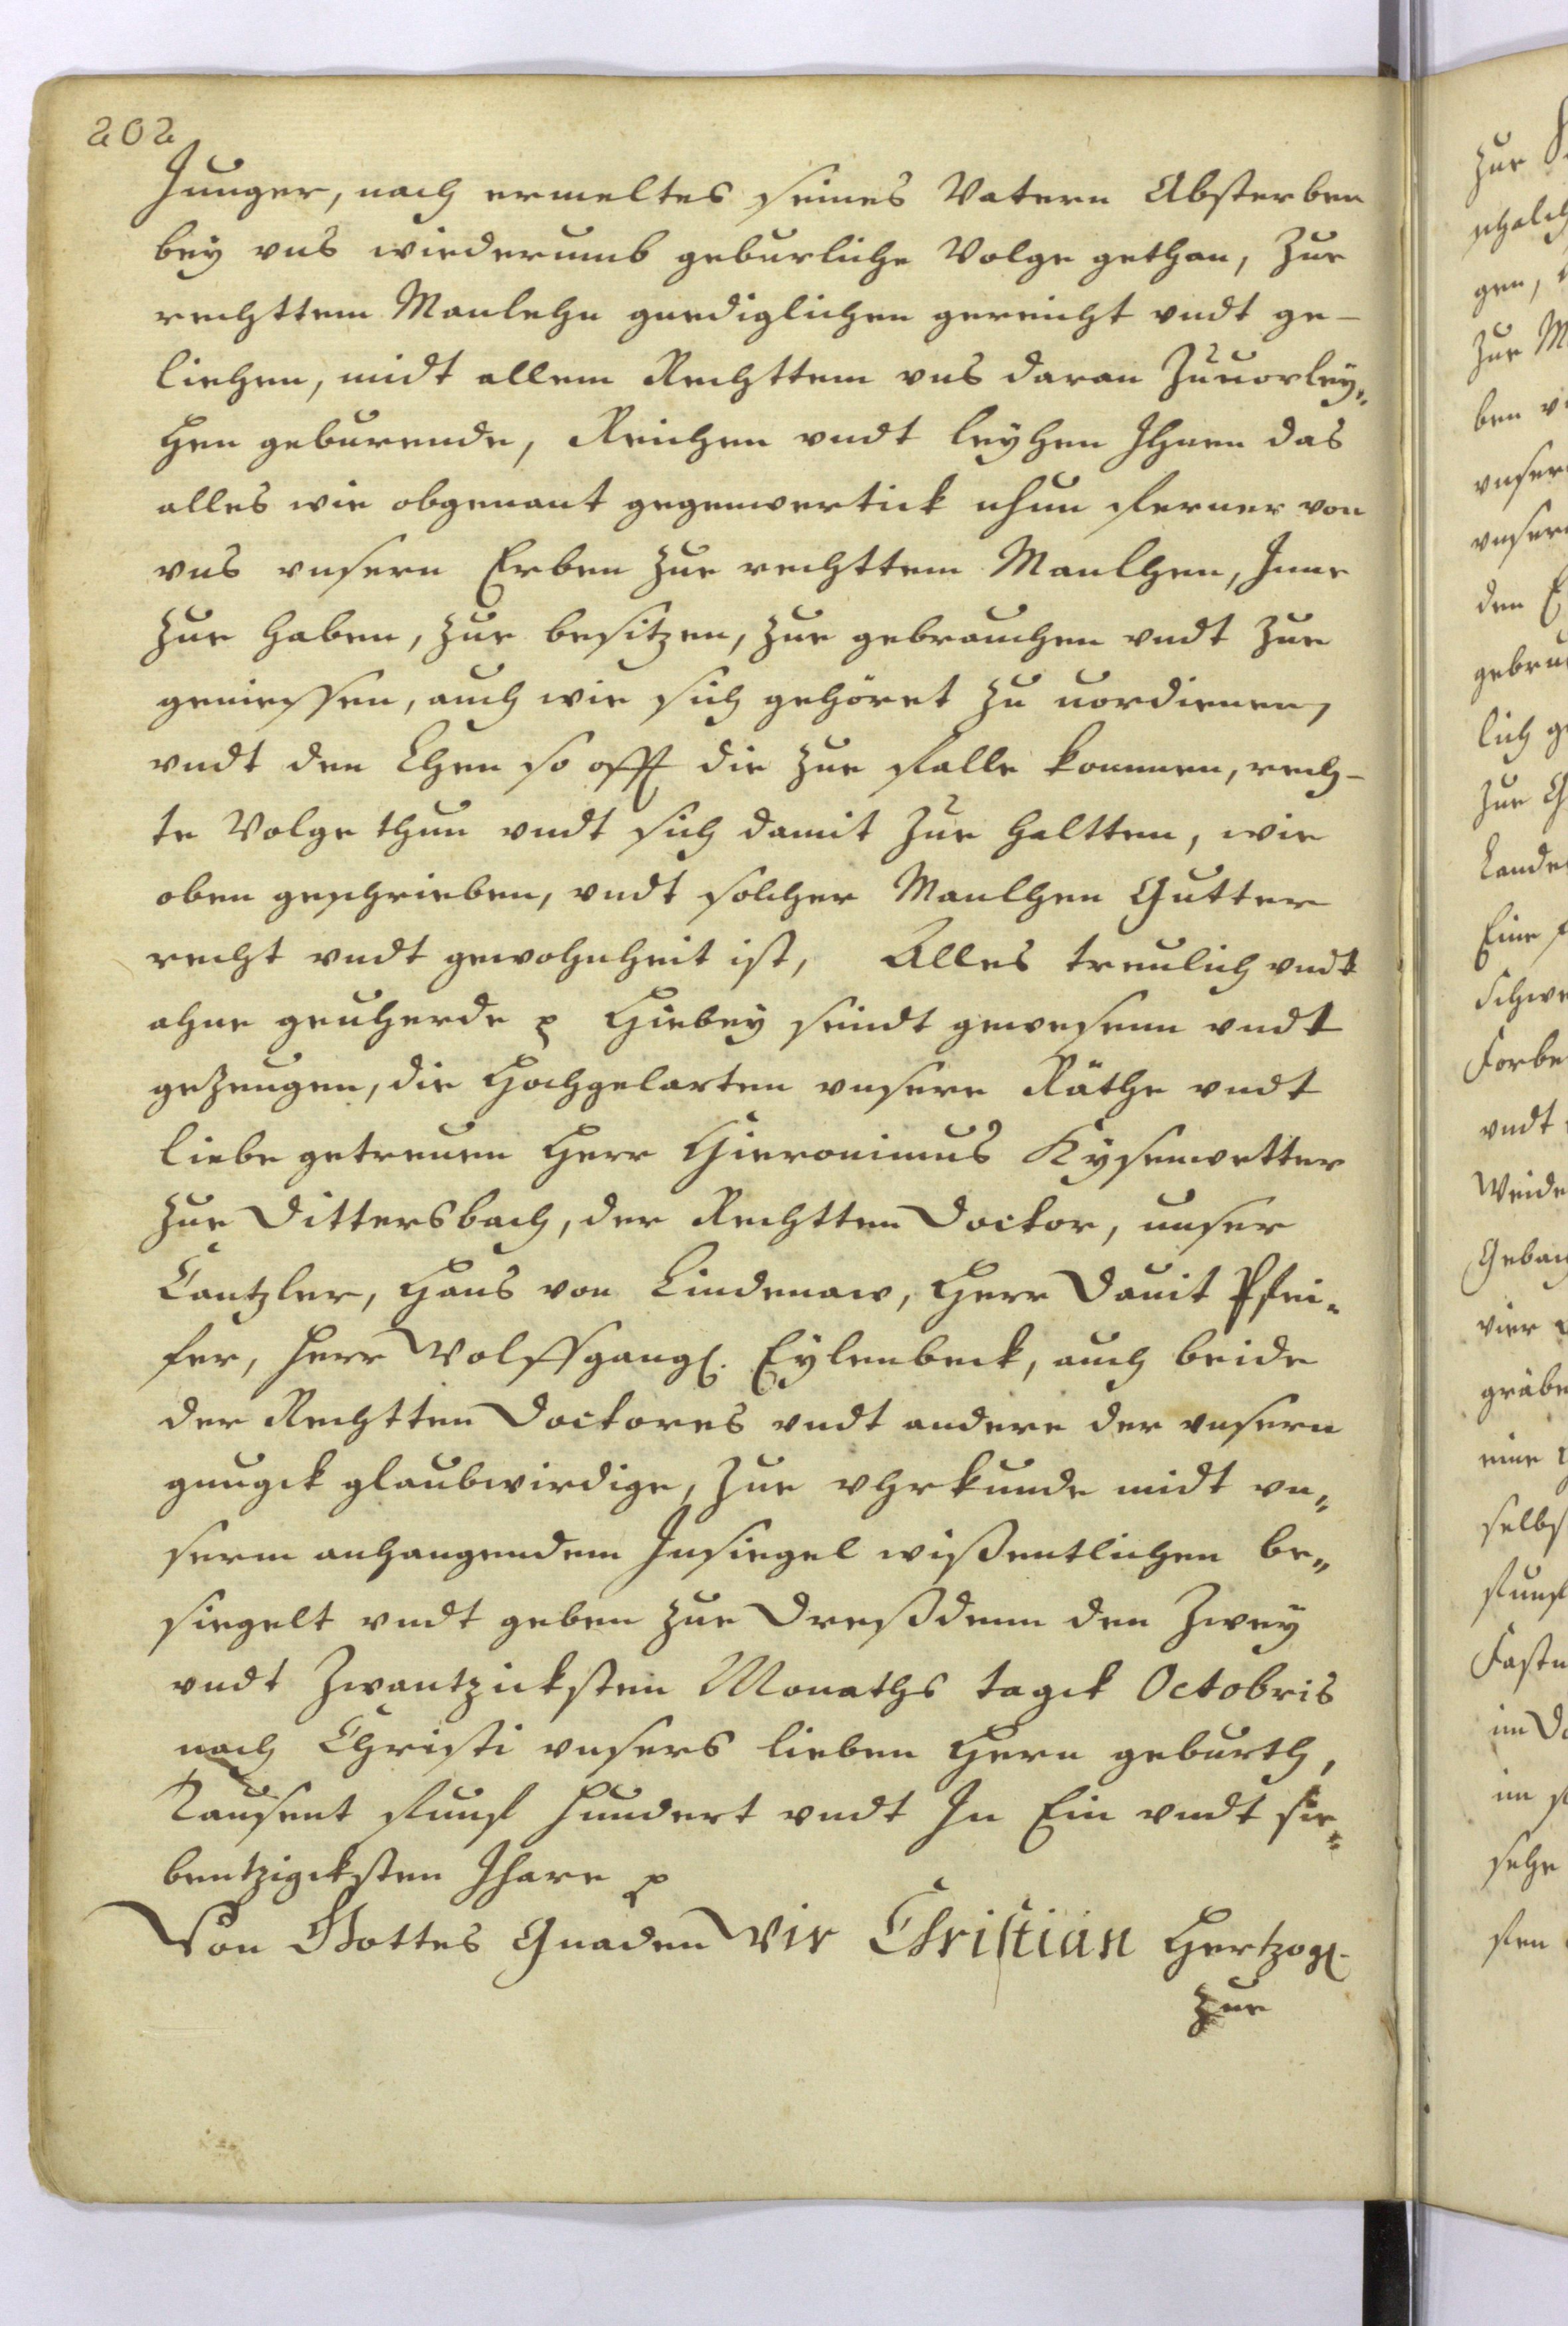 202
Junger, nach ermeltes seines Vatern Absterben
bey vns wiederumb geburliche Volge gethan, zue
rechttem Manlehn gnediglichen gereicht vndt ge-
liehen, midt allem Rechttem vns daran Zuuorley„
hen geburende, Reichen vndt leyhen Ihnen das
alles wie obgenant gegenwertick nhun ferner von
vns vnsern Erben zue rechttem Manlhen, Inne
zue haben, zue besitzen, zue gebrauchen vndt zue
geniessen, auch wie sich gehöret zu uordienen,
vndt den Lhen so offt die zue falle kommen, rech-
te Volge thun vndt sich damit zue haltten, wie
oben geschrieben, vndt solcher Manlhen Gutter
recht vndt gewohnheit ist, Alles treulich vndt
ahne geuherde Hiebey seindt gewesenn vndt
gezeugen, die Hochgelarten vnsere Räthe vndt
liebe getreuen Herr Hieronimus Kysenwetter
zue Dittersbach, der Rechtten Doctor, unser
Cantzler, Hans von Lindenaw, Herr Dauit Pfei„
fer, Herr Wolffgang. Eylenbeck, auch beide
der Rechtten Doctores vndt andere der vnsern
gnugck glaubwirdige, Zue vhrkunde midt vn„
serm anhangendem Insiegel wißentlichen be„
siegelt vndt geben zue Dreßdenn den Zwey
vndt Zwantzicksten Monaths tagck Octobris
nach Christi vnsers lieben Hern geburth,
Tausent funf hundert vndt In Ein vndt sie„
bentzigcksten Jhare
Von Gottes Gnaden Wir Christian Hertzog.
zue
zue
gen,
zue M
ben
vnser
den E
lich
zue
Lande
Eine
Schwe
vndt
Weide
vier
gräbe
eine
selbs
funf
Fastn
im
im
sehe